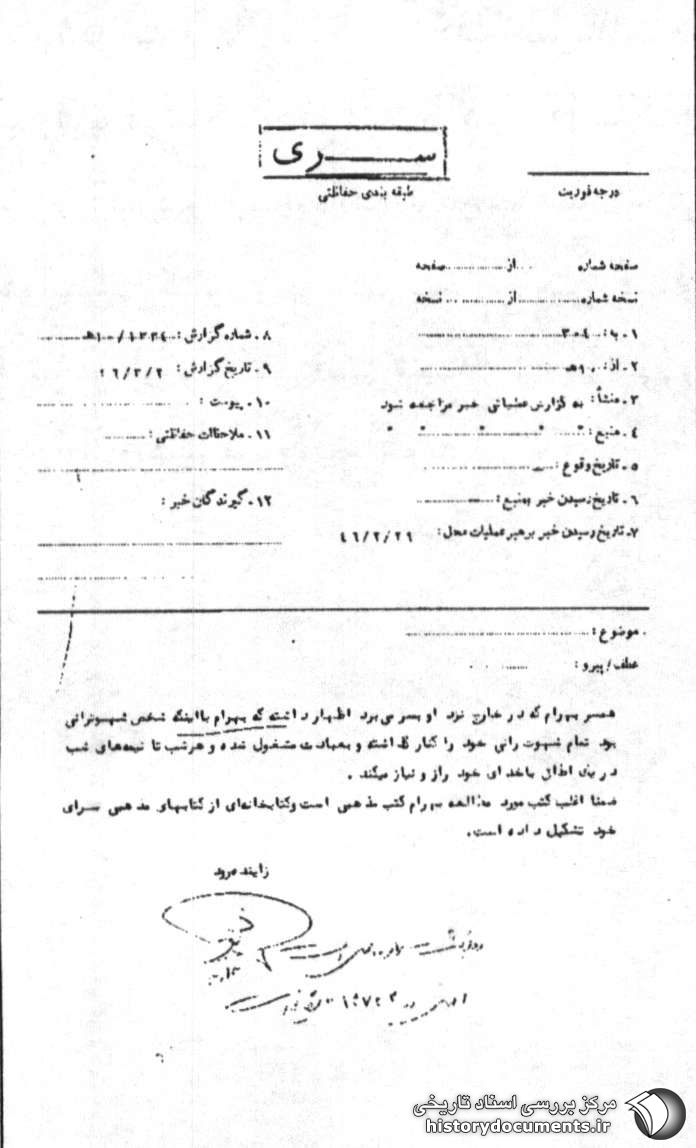 سری
طبقه بندی حفاظتی
درجه فوریت
صفحه شماره از صفحه
نسخه شماره از نسخه
۱ـ به: ۳۰۴
۲ـ از: ۱۰ه‍
۳ـ منشأ: به گزارش عملیاتی خبر مراجعه شود
۴ـ منبع: " " " "
۵ـ تاریخ وقوع:
۶ـ تاریخ رسیدن خبر بمنبع:
۷ـ تاریخ رسیدن خبر برهبر عملیات محل: ۴۶/۲/۲۹
۸ـ شماره گزارش:
۹ـ تاریخ گزارش: ۴۶/۳/۲
۱۰ـ پیوست:
۱۱ـ ملاحظات حفاظتی:
۱۲ـ گیرندگان خبر:
موضوع:
عطف/پیرو:
همسر بهرام که در خارج نزد او بسر می برد اظهار داشته که بهرام با اینکه شخص شهوترانی
بود تمام شهوت رانی خود را کنار گذاشته و بعبادت مشغول شده و هرشب تا نیمه‌های شب
در باخدای خود راز و نیاز میکند .
ضمنا اغلب کتب مورد مطالعه بهرام کتب مذهبی است وکتابخانه‌ای از کتابهای مذهبی برای
خود تشکیل داده است.
زاینده رود
مرکز بررسی اسناد تاریخی
historydocuments.ir